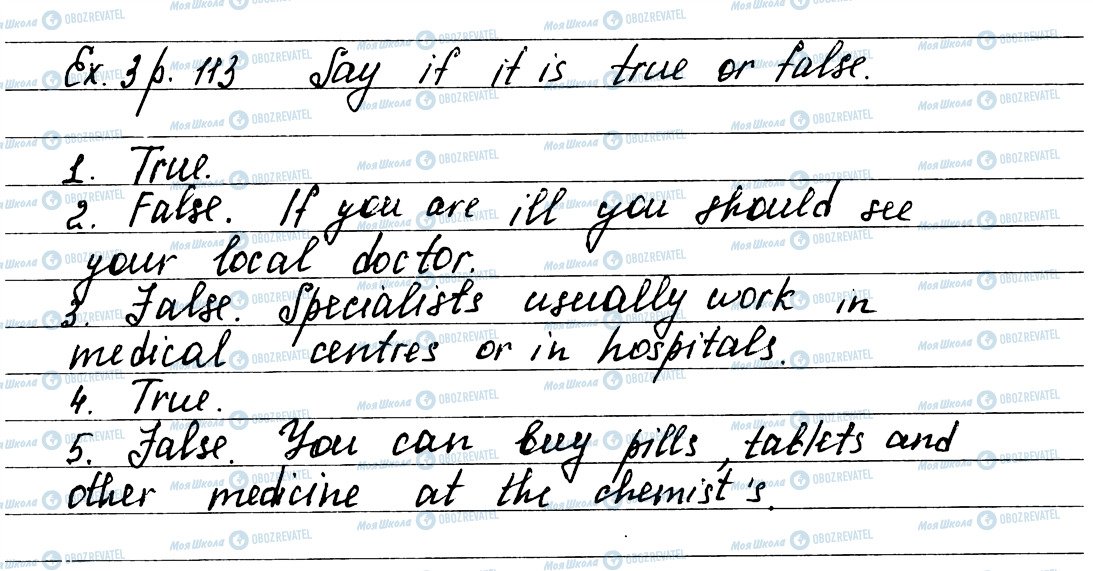 Ex. 3 p. 113 Say if it is true or false.
1. True.
2. False. If you are ill you should see
your local doctor.
3. False. Specialists usually work in
medical centres or in hospitals.
4. True.
5. False. You can buy pills, tablets and
other medicine at the chemist's.